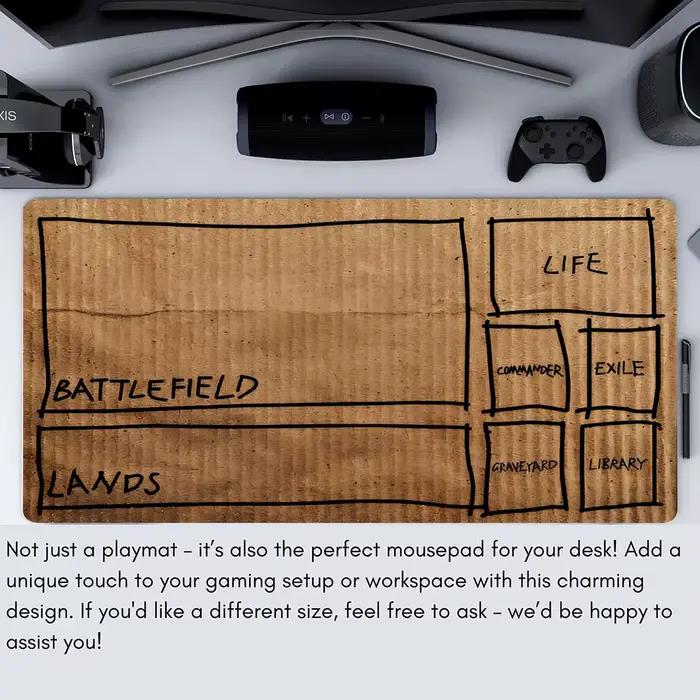 XIS
LIFE
BATTLEFIELD
COMMANDER
EXILE
LANDS
GRAVEYARD
LIBRARY
Not just a playmat – it's also the perfect mousepad for your desk! Add a
unique touch to your gaming setup or workspace with this charming
design. If you'd like a different size, feel free to ask – we'd be happy to
assist you!